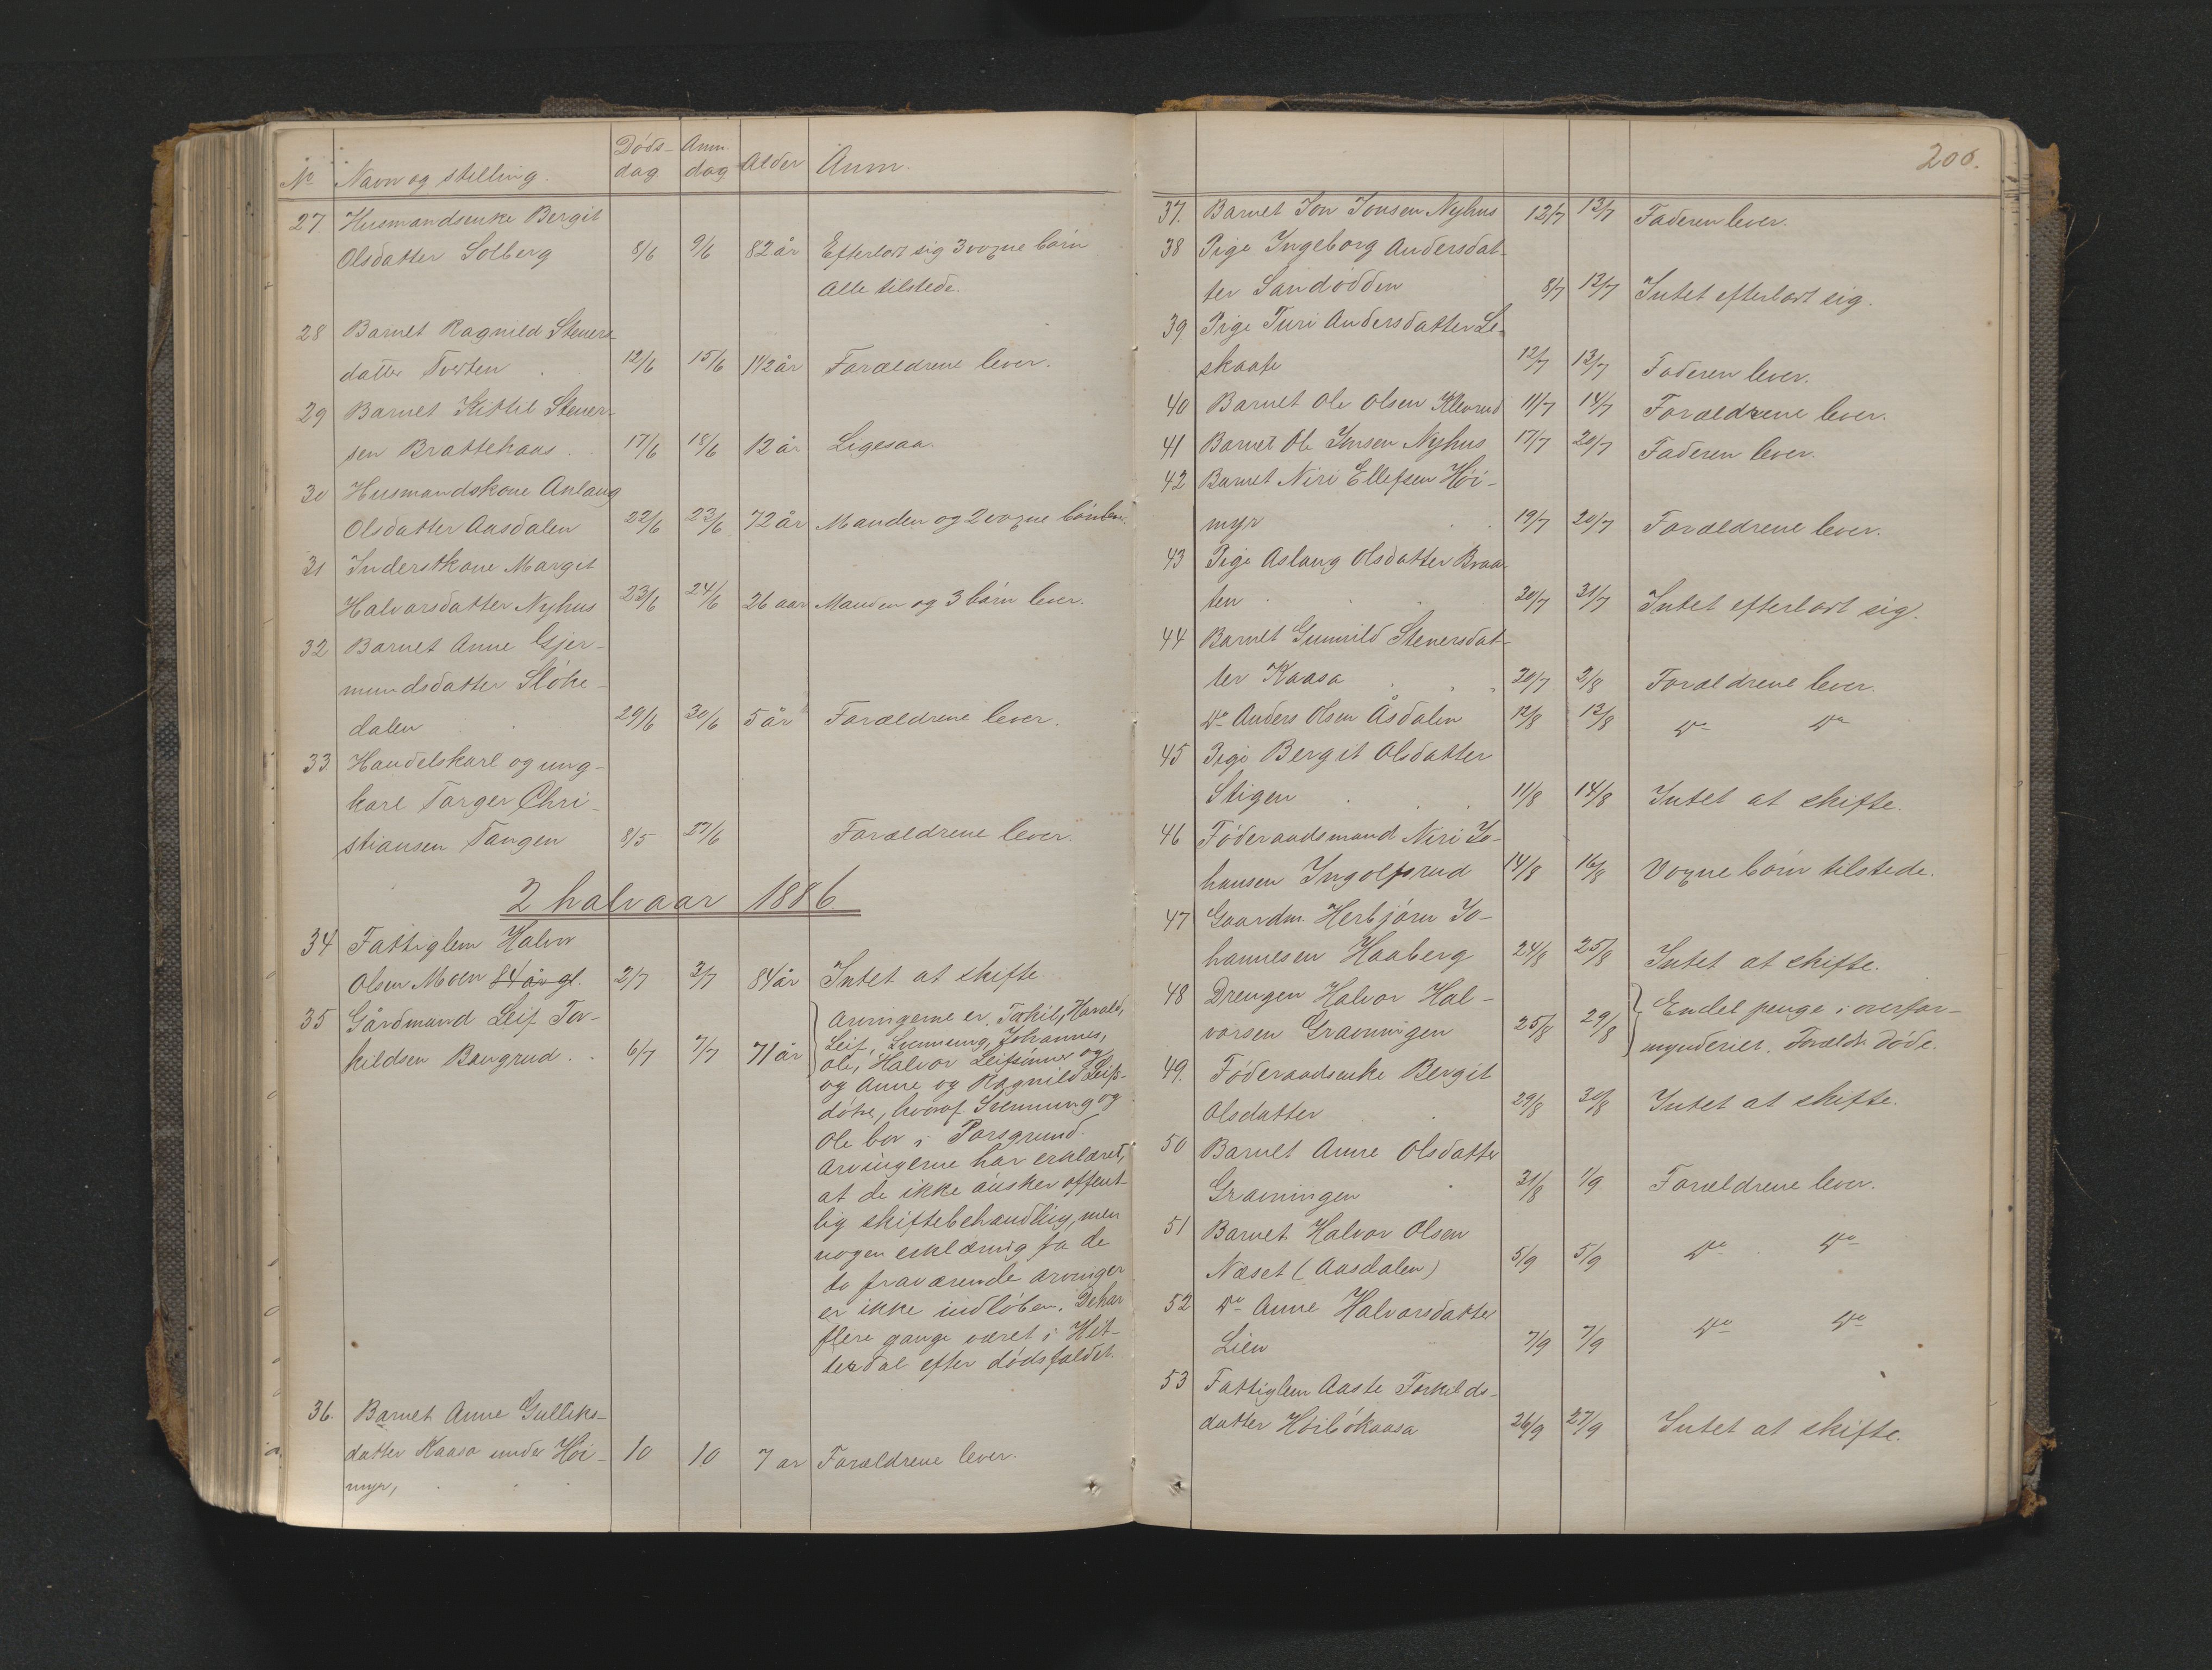 No Navn og stilling. Døds-dag Anm. dag Alder Anm.
27 Husmandsenke Bergit
Olsdatter Solberg 8/6 9/6 82 år Efterladt sig 3 voxne børn
Alle tilstede.
28 Barnet Ragnild Steners-
datter Tveten . 12/6 15/6 1 1/2 år Forældrene lever.
29 Barnet Kittil Stener-
sen Brattekaas . 17/6 18/6 12 år Ligesaa.
30 Husmandskone Aslaug
Olsdatter Aasdalen 22/6 23/6 72 år Manden og 2 voxne børn lever.
31 Inderstkone Margit
Halvorsdatter Nyhus 23/6 24/6 26 aar Manden og 3 børn lever.
32 Barnet Anne Gjer-
mundsdatter Sløke-
dalen . 29/6 30/6 5 år Forældrene lever.
33 Handelskarl og ung-
karl Torger Chri-
stiansen Tangen 8/5 27/6 Forældrene lever.
2 halvaar 1886.
34 Fattiglem Halvor
Olsen Moen 84 år gl. 2/7 3/7 84 år Intet at skifte
35 Gårdmand Leif Tor-
kildsen Baugrud . . 6/7 7/7 71 år
Arvingerne er. Torkil, Harald,
Leif, Svennung, Johannes,
Ole, Halvor Leifsønner og
og Anne og Ragnild Leifs-
døtre, hvoraf Svennung og
Ole bor i Porsgrund.
Arvingerne har erklæret,
at de ikke ønsker offent-
lig skiftebehandling, men
nogen erklæring fra de
to fraværende arvinger
er ikke indløben. De har
flere gange været i Hit-
terdal efter dødsfaldet.
36. Barnet Anne Gulliks-
datter Kaasa under Høi- 10 10 7 ar Forældrene lever.
myr,
206.
37. Barnet Jon Jonsen Nyhus 12/7 13/7 Faderen lever.
38 Pige Ingeborg Andersdat-
ter Sandødden 8/7 13/7 Intet efterladt sig.
39 Pige Turi Andersdatter Le-
skaate 12/7 13/7 Faderen lever.
40 Barnet Ole Olsen Klevrud 11/7 14/7 Forældrene lever.
41 Barnet Ole Jonsen Nyhus 17/7 20/7 Faderen lever.
42 Barnet Niri Ellefsen Høi-
myr . . 19/7 20/7 Forældrene lever.
43 Pige Aslaug Olsdatter Braa-
ten . . . 20/7 31/7 Intet efterladt sig.
44 Barnet Gunnild Stenersdat-
ter Kaasa . . . 30/7 2/8 Forældrene lever.
Do Anders Olsen Åsdalen 12/8 13/8 Do Do
45 Pige Bergit Olsdatter
Stigen . . . 11/8 14/8 Intet at skifte.
46 Føderaadsmand Niri Jo-
hansen Ingolfsrud 14/8 16/8 Voxne børn tilstede.
47 Gaardm. Herbjørn Jo-
hannesen Haaberg 24/8 25/8 Intet at skifte.
48 Drengen Halvor Hal- Endel penge i overfor-
vorsen Grauningen 25/8 29/8 mynderiet. Forældr. døde.
49. Føderaadsenke Bergit
Olsdatter . 29/8 30/8 Intet at skifte.
50 Barnet Anne Olsdatter
Grauningen . 31/8 1/9 Forældrene lever.
51 Barnet Halvor Olsen
Næset (Aasdalen) 5/9 5/9 Do . Do
52 Do Anne Halvorsdatter
Lien 7/9 7/9 Do Do
53 Fattiglem Aaste Torkilds-
datter Høibøkaasa 26/9 27/9 Intet at skifte.